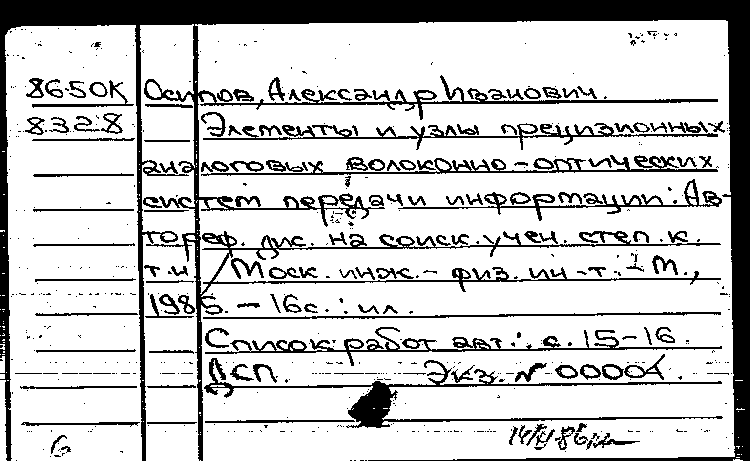 86-50К Осипов, Александр Иванович.
8328 Элементы и узлы прецизионных
аналоговых волоконно-оптических
систем передачи информации: Ав-
тореф. дис. на соиск. учен. степ. к.
т.н. / Моск. инж.-физ. ин-т. М.,
1985. - 16с. : ил.
Список работ авт.: с. 15-16.
ДСП. Экз. № 00001.
6